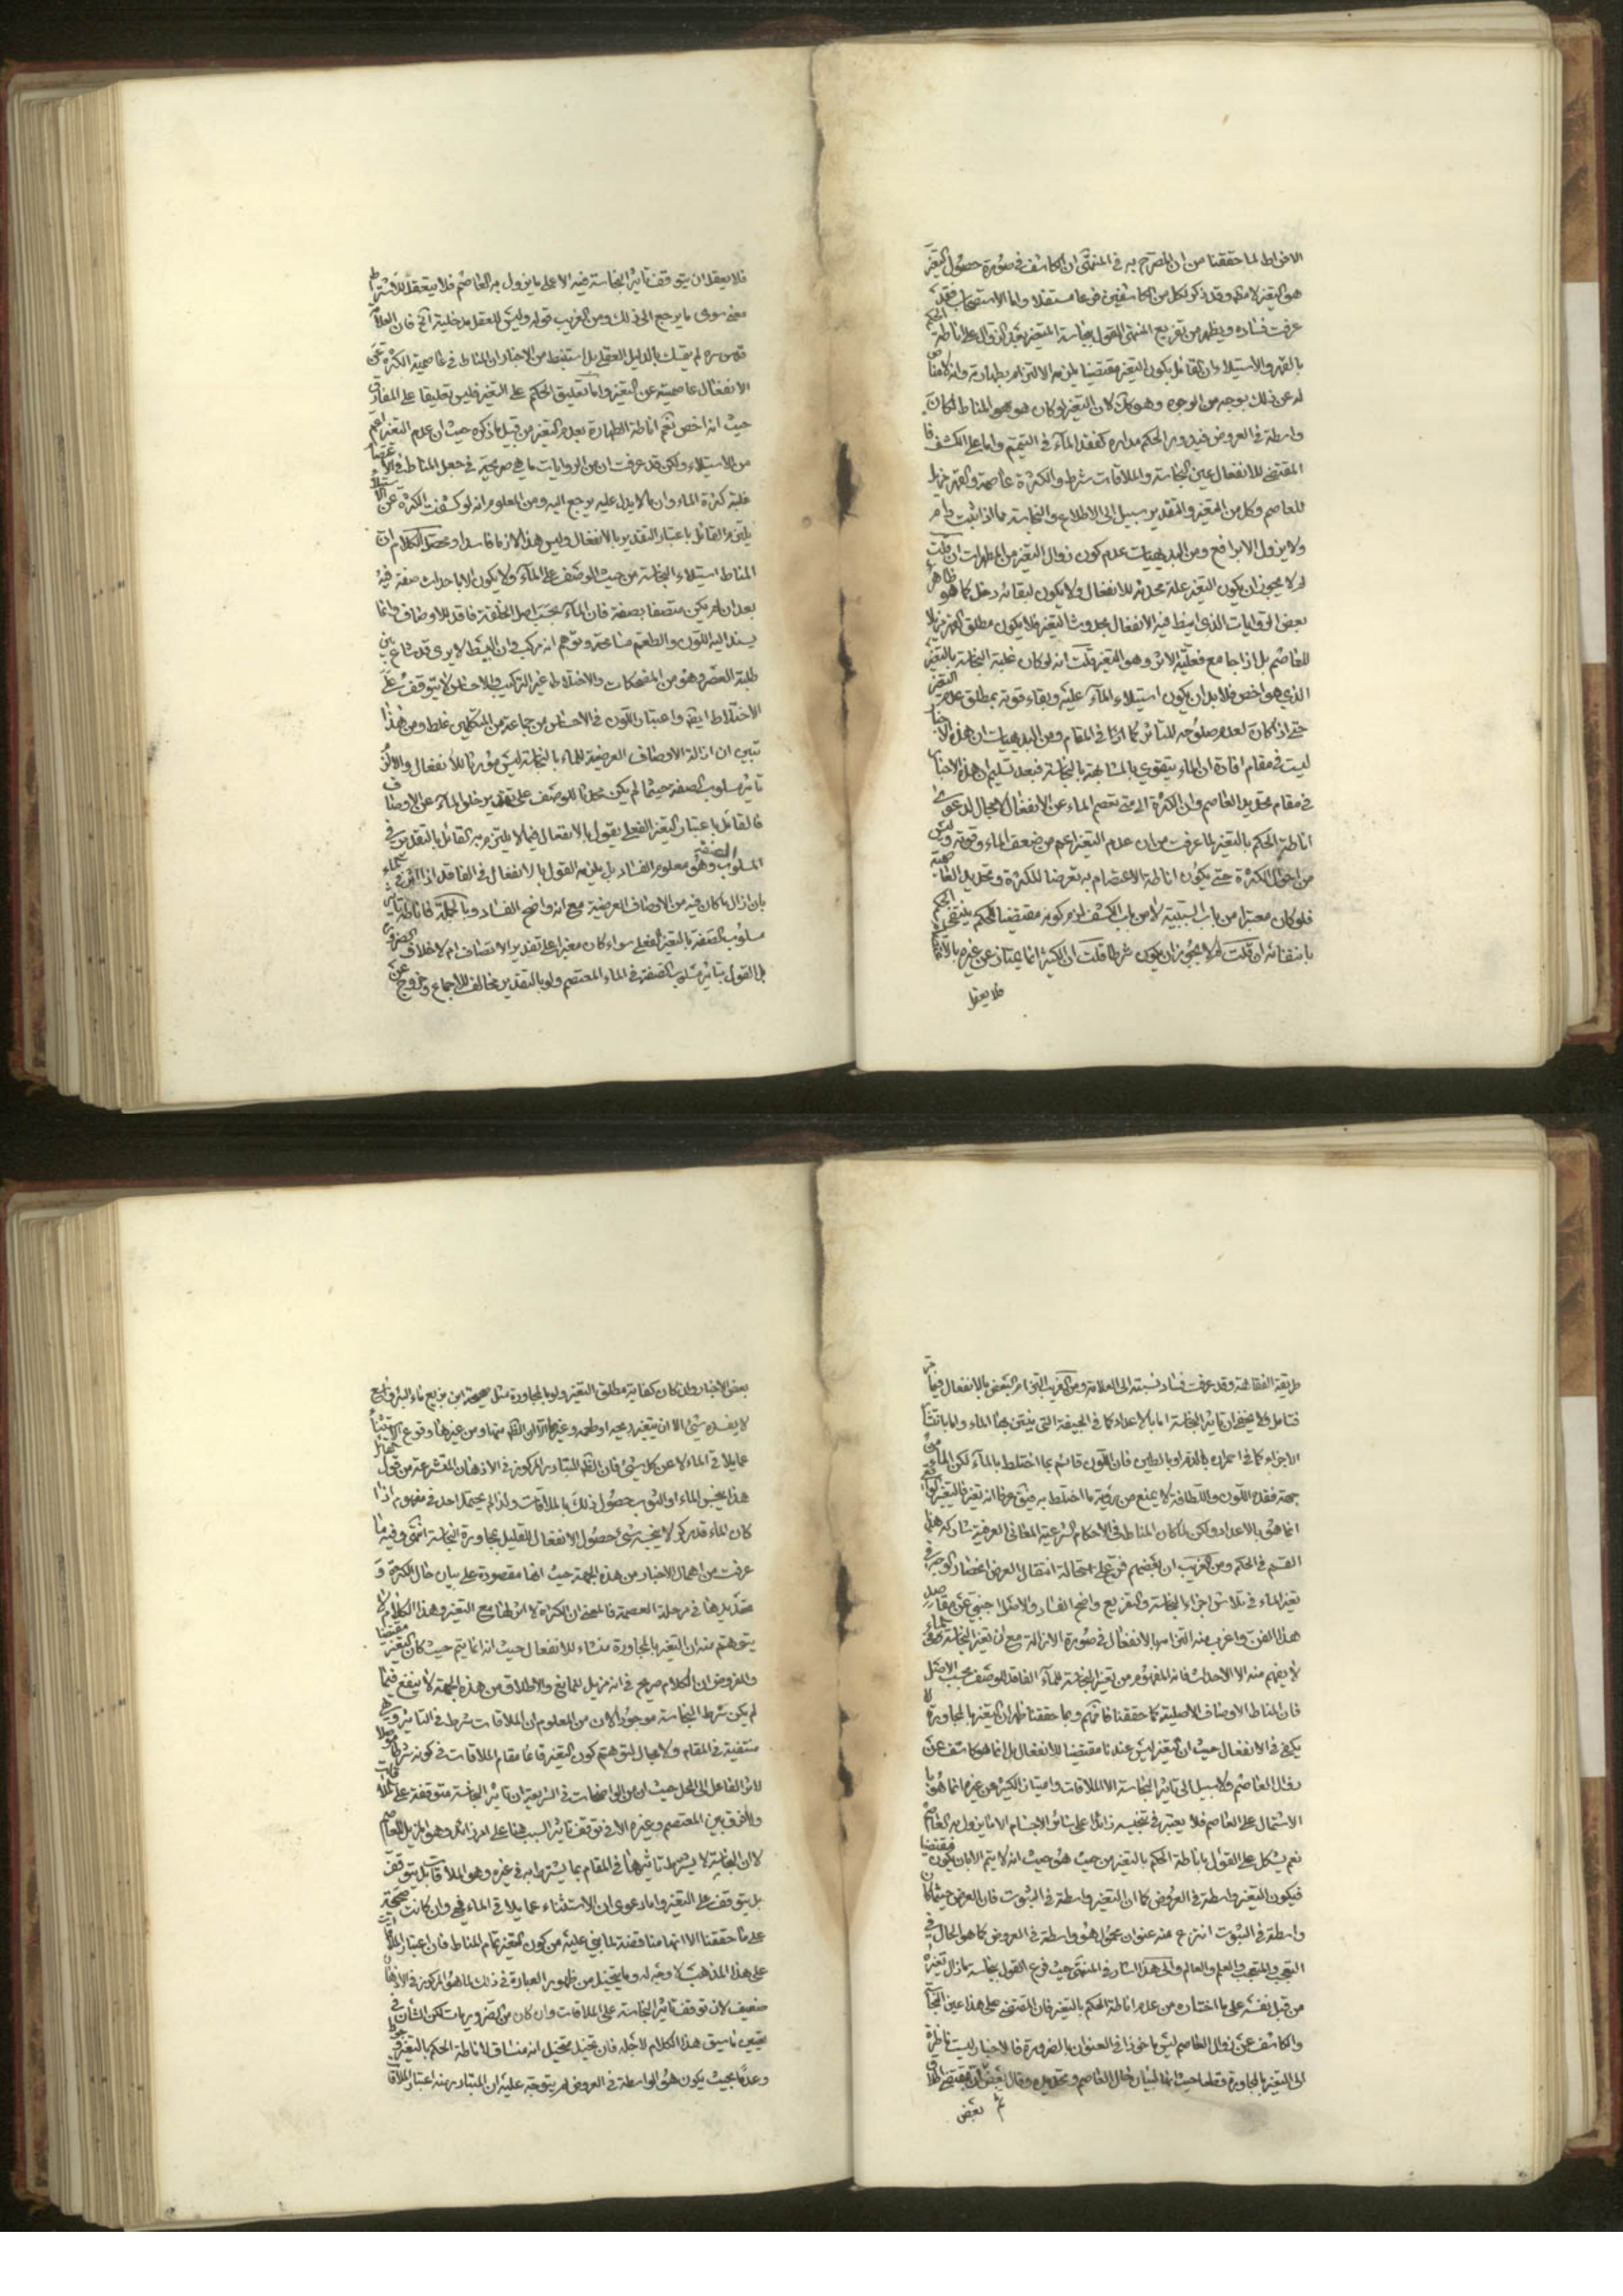 الافراط لما حققنا من ان المصرح به في المنتهى ان الكاشف في صورة حصول التغير
هو التغير لا مثله وقد ذكر لكل من الكاشفين فرعا مستقلا واما الاستصحاب فقد
عرفت فساده ويظهر من تفريع المنتهى القول بنجاسة المتغير بعد الزوال على اناطة الحكم
بالقهر والاستيلاء ان القائل بكون التغير مقتضيا يلزمه الالتزام بطهارته وانه لا مناص
له عن ذلك بوجه من الوجوه وهو كك لان التغير لو كان هو المناط لكان
واسطة في العروض فيدور الحكم مداره كفقد الماء في التيمم واما على الكشف فا
المقتضي للانفعال عين النجاسة والملاقات شرط والكثرة عاصمة والقهر مزيل
للعاصم وكل من التغير والتقدير سبيل الى الاطلاع والنجاسة مما اذا ثبت دام
ولا يزول الا برافع ومن البديهيات عدم كون زوال التغير من المطهرات ان قلت
لم لا يجوز ان يكون التغير علة محدثة للانفعال ولا يكون لبقائه دخل كما هو ظاهر
بعض الروايات الذي انيط فيه الانفعال بحدوث التغير فلا يكون مطلق القهر مزيلا
للعاصم بل اذا جامع فعلية الاثر وهو التغير قلت انه لو كان غلبة النجاسة بالتغير
الذي هو اخص فلا بد ان يكون استيلاء الماء عليه وبقاء قوته بمطلق عدم التغير
حتى اذا كان لعدم صلوحه للتاثر كما في المقام ومن البديهيات ان هذه الاخبار
ليست في مقام افادة ان الماء يتقوي بالمشابهة بالنجاسة فبعد تسليم ان هذه الاخبار
في مقام تحديد العاصم وان الكثرة الى متى تعصم الماء عن الانفعال لا مجال لدعوى
اناطة الحكم بالتغير لما عرفت من ان عدم التغير اعم من ضعف الماء وقوته وليس
من احوال الكثرة حتى يكون اناطة الاعتصام به تعرضا للكثرة وتحديد العاصمية
فلو كان معتبرا من باب السببية لا من باب الكشف لزم كونه مقتضيا للحكم ينتفى الحكم
بانتفائه ان قلت لم لا يجوز ان يكون شرطا قلت ان الكثير انما يمتاز عن غيره بالاعتصام
فلا يعقل
فلا يعقل ان يتوقف تاثير النجاسة فيه الا على ما يزول به العاصم فلا يتعقل للاشتراط
معنى سوى ما يرجع الى ذلك ومن الغريب قوله وليس للعقل مدخلية الخ فان العلامة
قدس سره لم يتمسك بالدليل العقلي بل استنبط من الاخبار ان المناط في عاصمية الكثرة عن
الانفعال عاصميته عن التغير واما تعليق الحكم على التغير فليس تعليقا على المقارن
حيث انه اخص نعم اناطة الطهارة بعدم التغير من قبيل ما ذكره حيث ان عدم التغير اعم
من الاستيلاء ولكن قد عرفت ان من الروايات ما هي صريحة في جعل المناط في الاعتصام
غلبة كثرة الماء وان ما لا يدل عليه يرجع اليه ومن المعلوم انه لو كشفت الكثرة عن الاستيلاء
يلتزم القائل باعتبار التقدير بالانفعال وليس هذا لازما فاسدا ومحصل الكلام ان
المناط استيلاء النجاسة من حيث الوصف على الماء ولا يكون الا باحداث صفة فيه
بعد ان لم يكن متصفا بصفة فان الماء بحسب اصل الخلقة فاقد للاوصاف وانما
يسند اليه اللون والطعم مسامحة وتوهم انه مركب وان البسيط لا يرى قد شاع بين
طلبة العصر وهو من المضحكات والاختلاط غير التركيب والاحساس لا يتوقف على
الاختلاط ايضا واعتبار اللون في الاحساس من جماعة من المتكلمين غلط ومن هذا
تبين ان ازالة الاوصاف العرضية للماء بالنجاسة ليس مؤثرا للانفعال والا لزم
تاثير مسلوب الصفة حيثما لم يكن محدثا للوصف على تقدير خلو الماء عن الاوصاف
فالقائل باعتبار التغير الفعلي يقول بالانفعال فيما لا يلتزم به القائل بالتقدير في
المسلوب الصفة وهو معلوم الفساد بل يلزمه القول بالانفعال في الفاقد اذا اثر في الماء
بان ازال ما كان فيه من الاوصاف العرضية مع انه واضح الفساد وبالجملة فاناطة تاثير
مسلوب الصفة بالتغير الفعلي سواء كان مغيرا على تقدير الاتصاف ام لا خلاف الضرورة
بل القول بتاثير مسلوب الصفة في الماء المعتصم ولو بالتقدير مخالف للاجماع وخروج عن
طريقة الفقاهة وقد عرفت فساد نسبته الى العلامة ومن الغريب التزام البعض بالانفعال فيما مر
فتامل ولا يخفى ان تاثير النجاسة اما بالاعداد كما في الجيفة التي ينتن بها الماء واما بانتشار
الاجزاء كما في احمراره بالدم او بالطين فان اللون قائم بما اختلط بالماء لكن الماء من
جهة فقده اللون واللطافة لا يمنع من رؤية ما اختلط به فيصدق عرفا انه تغير فالتغير
انما هو بالاعداد ولكن لما كان المناط في الاحكام الشرعية المعاني العرفية شاركه هذا
القسم في الحكم ومن الغريب ان بعضهم فرع على استحالة انتقال العرض انحصار الوجه في
تغير الماء في تلاشي اجزاء النجاسة والتفريع واضح الفساد والاصل اجنبي عن مقاصد
هذا الفن واغرب منه التزامه بالانفعال في صورة الازالة مع ان تغير النجاسة للماء
لا يفهم منه الا الاحداث فانه المفهوم من تغيير النجاسة للماء الفاقد للوصف بحسب الاصل
فان المناط الاوصاف الاصلية كما حققنا فافهم ومما حققنا ظهر ان التغير بالمجاورة لا
يكفي في الانفعال حيث ان التغير ليس عندنا مقتضيا للانفعال بل انما هو كاشف عن
زوال العاصم ولا سبيل الى تاثير النجاسة الا الملاقات وامتياز الكثير عن غيره انما هو با
الاشتمال على العاصم فلا يعتبر في تنجيسه زائدا على سائر الاجسام الا ما يزول به العاصم
نعم يشكل على القول باناطة الحكم بالتغير من حيث هو حيث انه لا يتم الا بان يكون مقتضيا
فيكون التغير واسطة في العروض كما ان التغير واسطة في الثبوت فان العرض حيثما كان
واسطة في الثبوت انتزع منه عنوان محمول هو واسطة في العروض كما هو الحال في
التعجب والمتعجب والعلم والعالم والى هذا اشار في المنتهى حيث فرع القول بنجاسة ما زال تغيره
من قبل نفسه على ما اختاره من عدم اناطة الحكم بالتغير فان المقتضي على هذا عين النجاسة
والكاشف عن زوال العاصم ليس ماخوذا في العنوان بالضرورة فالاخبار ليست ناظرة
الى التغير بالمجاورة قطعا حيث انها لبيان حال العاصم وتحديده وقال بعض ان مقتضى اطلاق
بعض
بعض الاخبار وان كان كفاية مطلق التغير ولو بالمجاورة مثل صحيحة ابن بزيع ماء البئر واسع
لا يفسده شيء الا ان يتغير ريحه او طعمه وغيرها الا ان الظاهر منها ومن غيرها وقوع الاستثناء
عما يلاقي الماء لا عن كل شيء فان الظاهر المتبادر المركوز في الاذهان المتشرعة من قول القائل
هذا ينجس الماء او الثوب حصول ذلك بالملاقات ولذا لم يحتمل احد في مفهوم اذا
كان الماء قدر كر لا ينجسه شيء حصول الانفعال للقليل بمجاورة النجاسة انتهى وفيه ما
عرفت من اهمال الاخبار من هذه الجهة حيث انها مقصودة على بيان حال الكثرة و
تحديدها في مرحلة العصمة فالمعنى ان الكثرة لا اثر لها مع التغير وهذا الكلام لا
يتوهم منه ان التغير بالمجاورة منشاء للانفعال حيث انه انما يتم حيث كان التغير مقتضيا
والمفروض ان الكلام صريح في انه مزيل للمانع والاطلاق من هذه الجهة لا ينفع فيما
لم يكن شرط النجاسة موجودا لان من المعلوم ان الملاقات شرط في التاثير وهي
منتفية في المقام ولا مجال لتوهم كون التغير قائما مقام الملاقات في كونه شرطا موصلا
لاثر الفاعل الى المحل حيث ان من الواضحات في الشريعة ان تاثير النجاسة متوقفة على الملاقات
ولا فرق بين المعتصم وغيره الا في توقف تاثير السبب هنا على امر زائد وهو المزيل للعاصم
لا ان النجاسة لا يشترط تاثيرها في المقام بما يشترط به في غيره وهو الملاقات بل يتوقف
بل يتوقف على التغير واما دعوى ان الاستثناء عما يلاقي الماء فهي وان كانت صحيحة
على ما حققنا الا انها مناقضة لما بنى عليه من كون التغير تمام المناط فان اعتبار الملاقات
على هذا المذهب لا وجه له وما يتخيل من ظهور العبارة في ذلك لما هو المركوز في الاذهان
ضعيف لان توقف تاثير النجاسة على الملاقات وان كان من الضروريات لكن الشان في
تعيين ما سيق هذا الكلام لاجله فان تخيل متخيل انه مساق لاناطة الحكم بالتغير وجودا
وعدما بحيث يكون هو الواسطة في العروض لم يتوجه عليه ان المتبادر منه اعتبار الملاقات